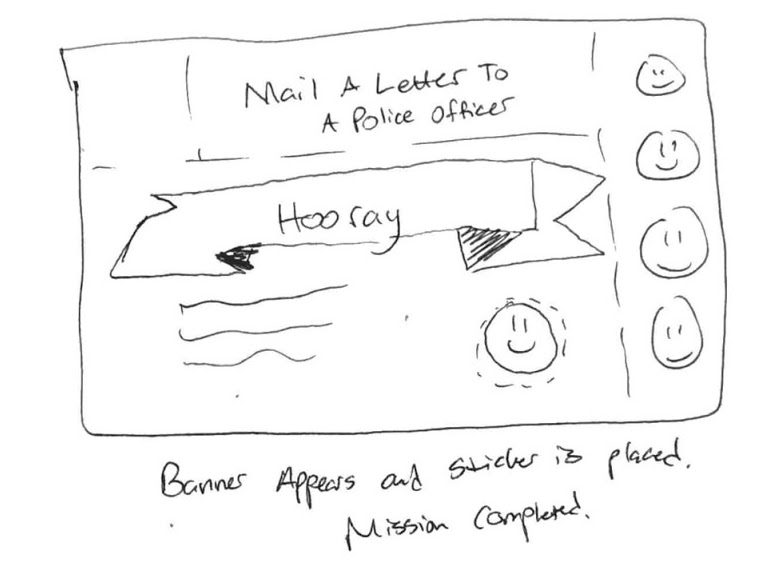 Mail A Letter To
A Police Officer
Hooray
Banner Appears and sticker is placed.
Mission Completed.